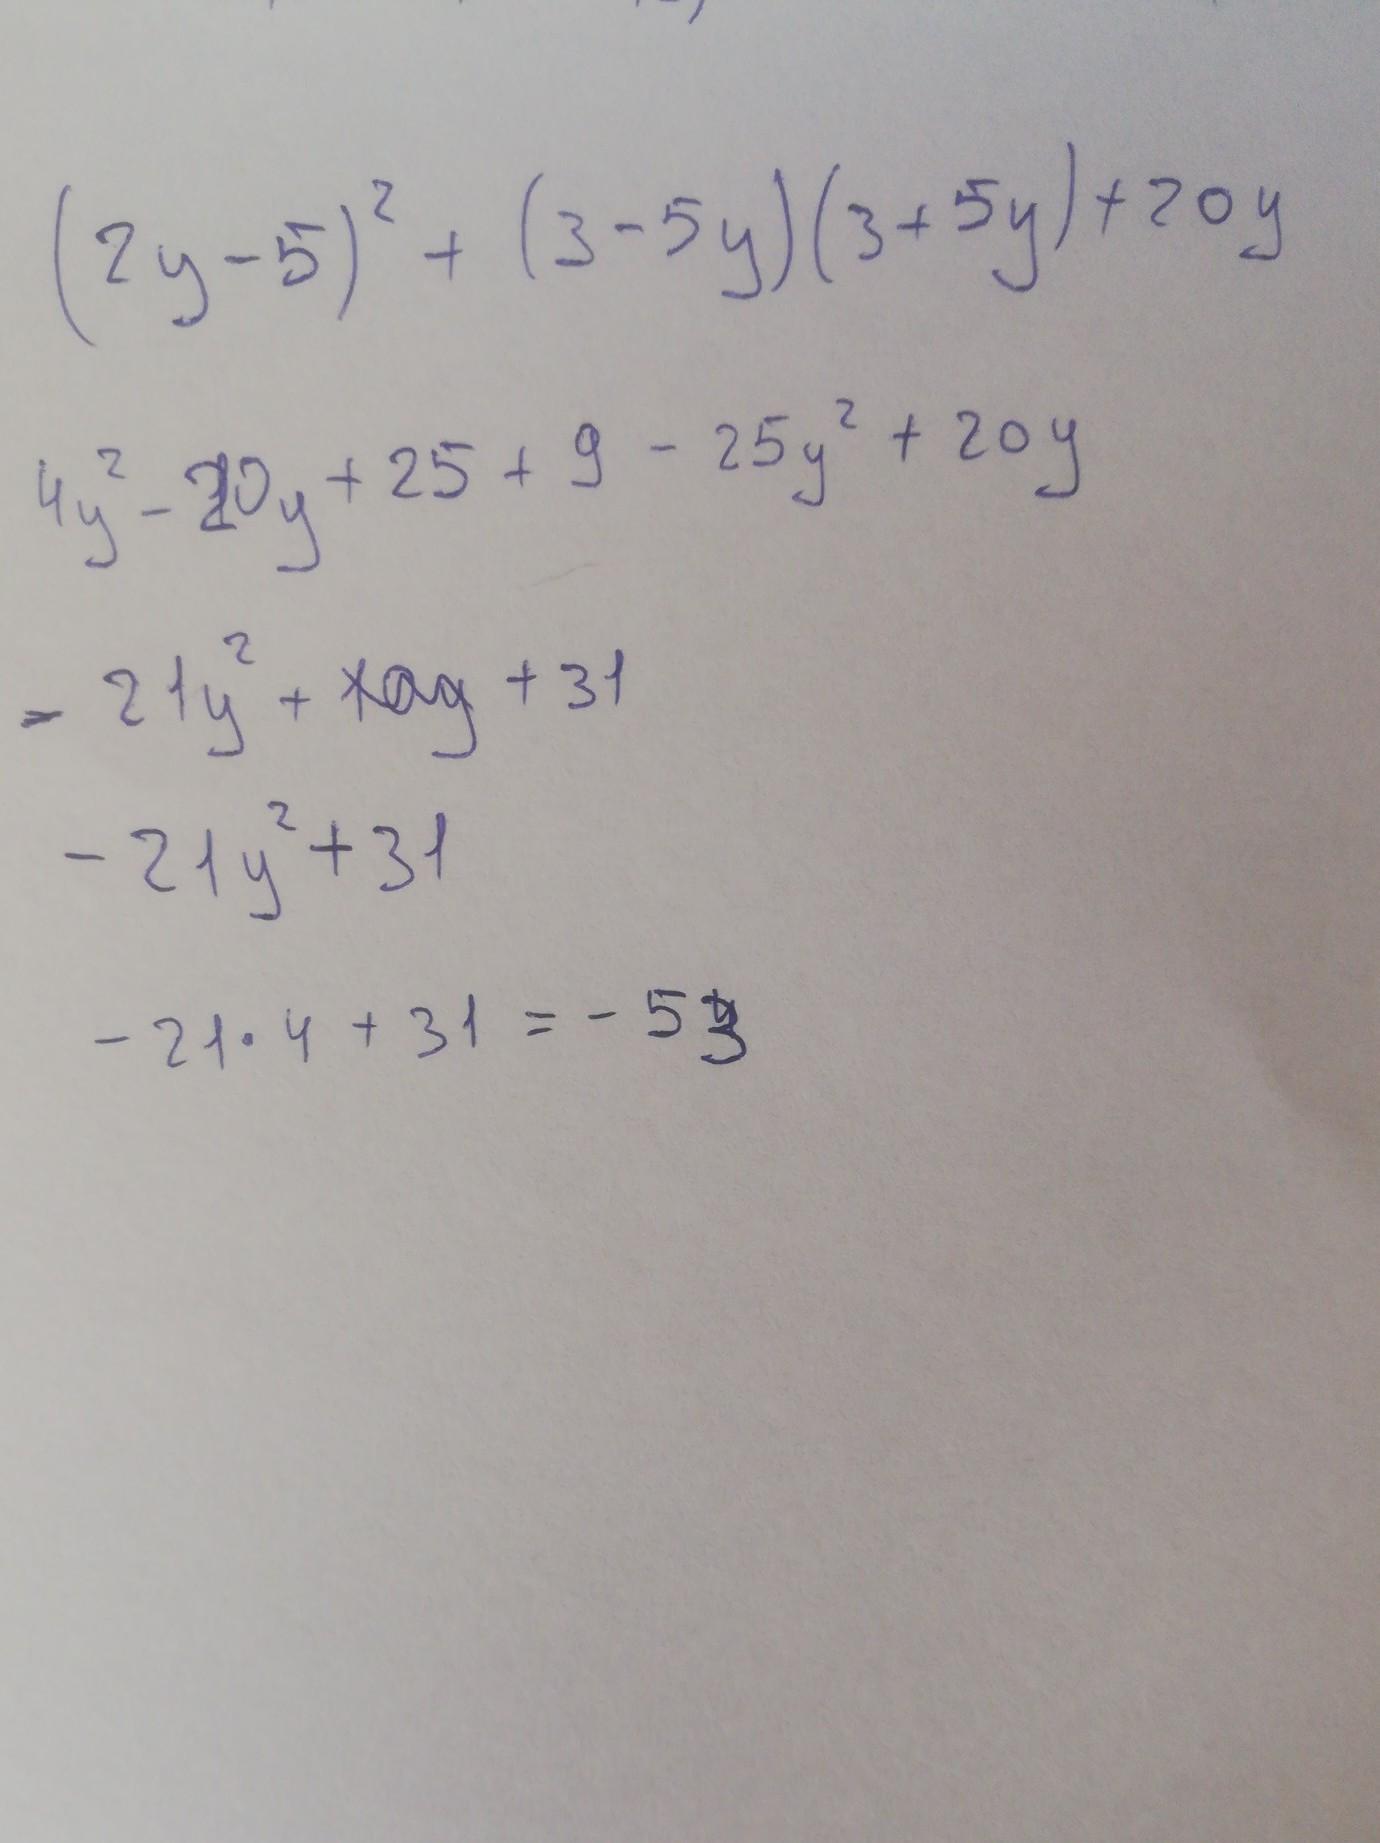 (2y-5)² + (3-5y)(3+5y)+20y
4y² - 20y + 25 + 9 - 25y² + 20y
- 21y² + +31
- 21y² + 31
- 21·4 + 31 = - 53